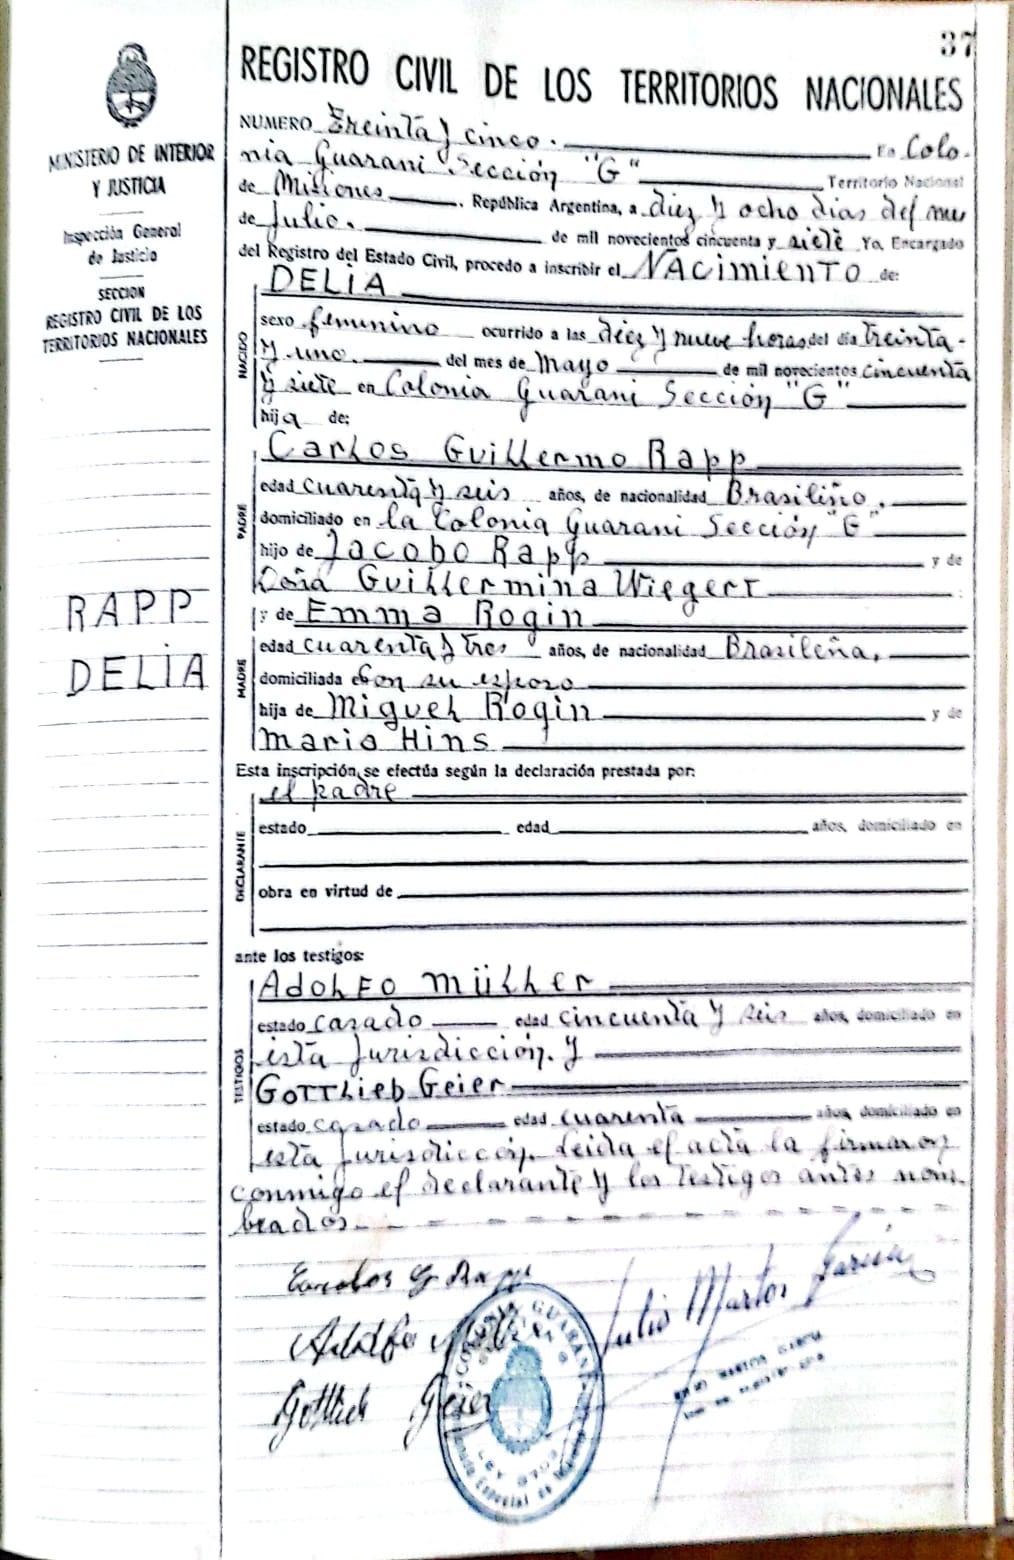 37
REGISTRO CIVIL DE LOS TERRITORIOS NACIONALES
MINISTERIO DE INTERIOR
Y JUSTICIA
Inspección General
de Justicia
SECCION
REGISTRO CIVIL DE LOS
TERRITORIOS NACIONALES
RAPP
DELIA
NUMERO Treinta y cinco. En Colo-
nia Guarani Sección "G" Territorio Nacional
de Misiones. República Argentina, a diez y ocho dias del mes
de Julio. de mil novecientos cincuenta y siete Yo, Encargado
del Registro del Estado Civil, procedo a inscribir el NACIMIENTO de:
DELIA
NACIDO
sexo femenino ocurrido a las diez y nueve horas del día treinta
y uno. del mes de Mayo de mil novecientos cincuenta
y siete en Colonia Guarani Sección "G"
hija de:
PADRE
Carlos Guillermo Rapp
edad cuarenta y seis años, de nacionalidad Brasiliño.
domiciliado en la Colonia Guarani Sección "G"
hijo de Jacobo Rapp y de
Doña Guillermina Wiegert
y de Emma Rogin
MADRE
edad cuarenta y tres años, de nacionalidad Brasileña.
domiciliada con su esposo
hija de Miguel Rogin y de
Maria Hins
Esta inscripción, se efectúa según la declaración prestada por:
DECLARANTE
el padre
estado edad años, domiciliado en
obra en virtud de
ante los testigos:
TESTIGOS
Adolfo Müller
estado casado edad cincuenta y seis años, domiciliado en
ésta Jurisdicción. y
Gottlieb Geier
estado casado edad cuarenta años, domiciliado en
esta Jurisdicción. Leida el acta la firmaron
conmigo el declarante y los testigos antes nom-
brados.
Carlos G Rapp
Julio Martos García
Adolfo Müller
Gottlieb Geier
COLONIA GUARANI
LEY
JULIO MARTOS GARCIA